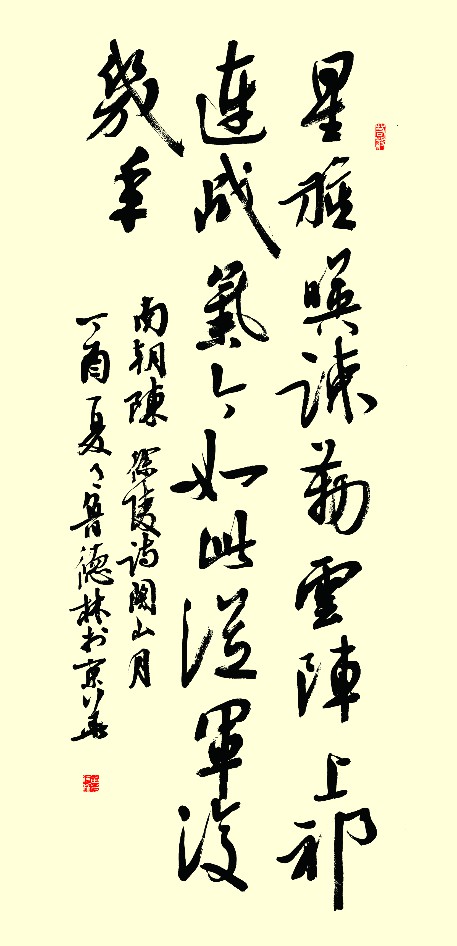 星旗暎疎勒雲陣上祁
連战氣今如此從軍復
幾年
南朝陳徐陵詩關山月
丁酉夏魯德林於京華